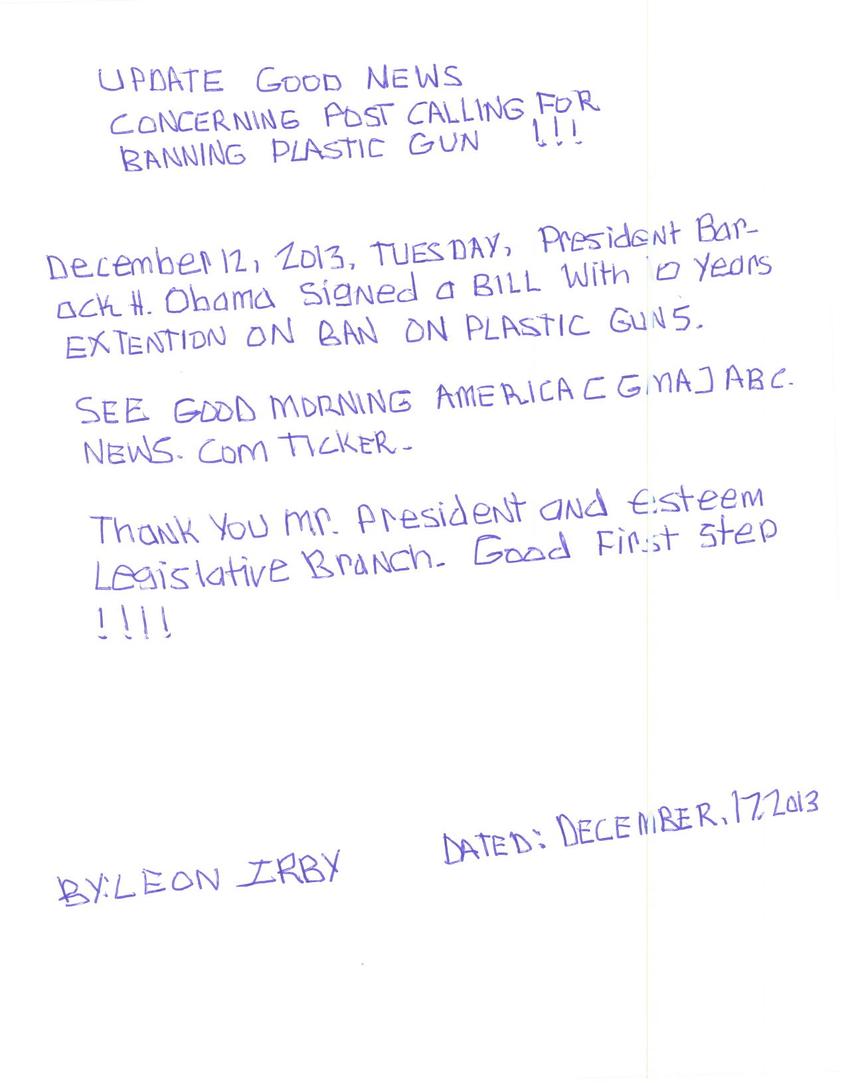 UPDATE GOOD NEWS
CONCERNING POST CALLING FOR
BANNING PLASTIC GUN !!!
December 12, 2013, TUESDAY, President Bar-
ack H. Obama signed a BILL With 10 Years
EXTENTION ON BAN ON PLASTIC GUNS.
SEE GOOD MORNING AMERICA [ GMA ] ABC.
NEWS. COM TICKER.
Thank You Mr. President and Esteem
Legislative Branch. Good First step
!!!!
DATED: DECEMBER, 17, 2013
BY: LEON IRBY